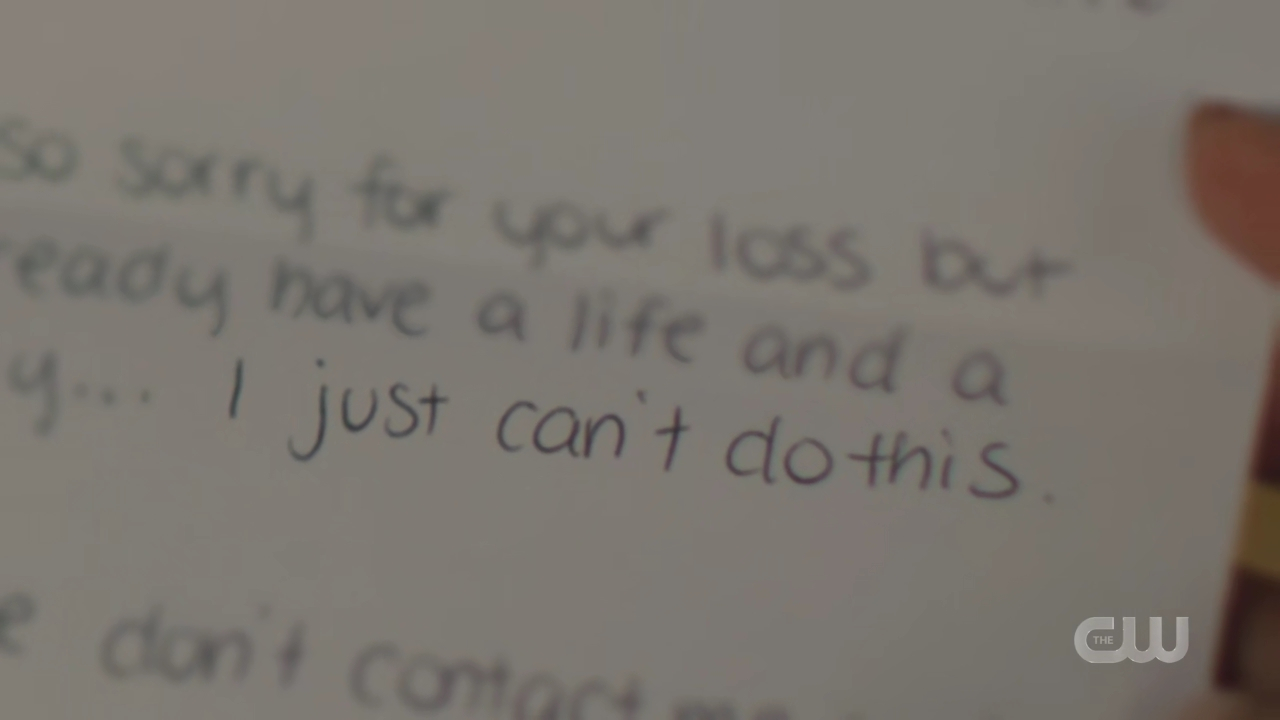 so sorry for your loss but
ready have a life and a
y... I just can't do this.
e don't contact me
THE CW